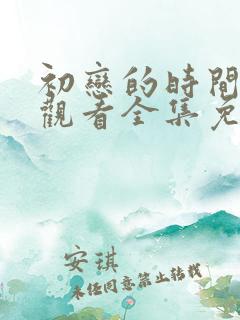 初戀的時間
觀看全集免
安琪
未經同意禁止轉載